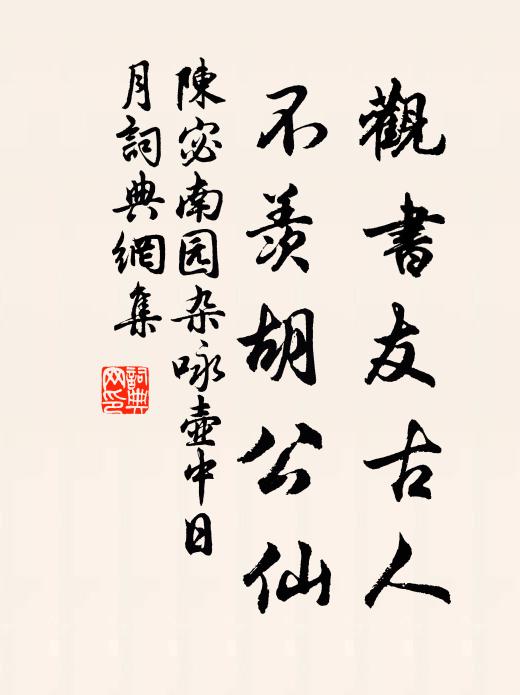 觀書友古人
不羨胡公仙
陳宓南园杂咏壺中日
月詞典網集
詞典
网印